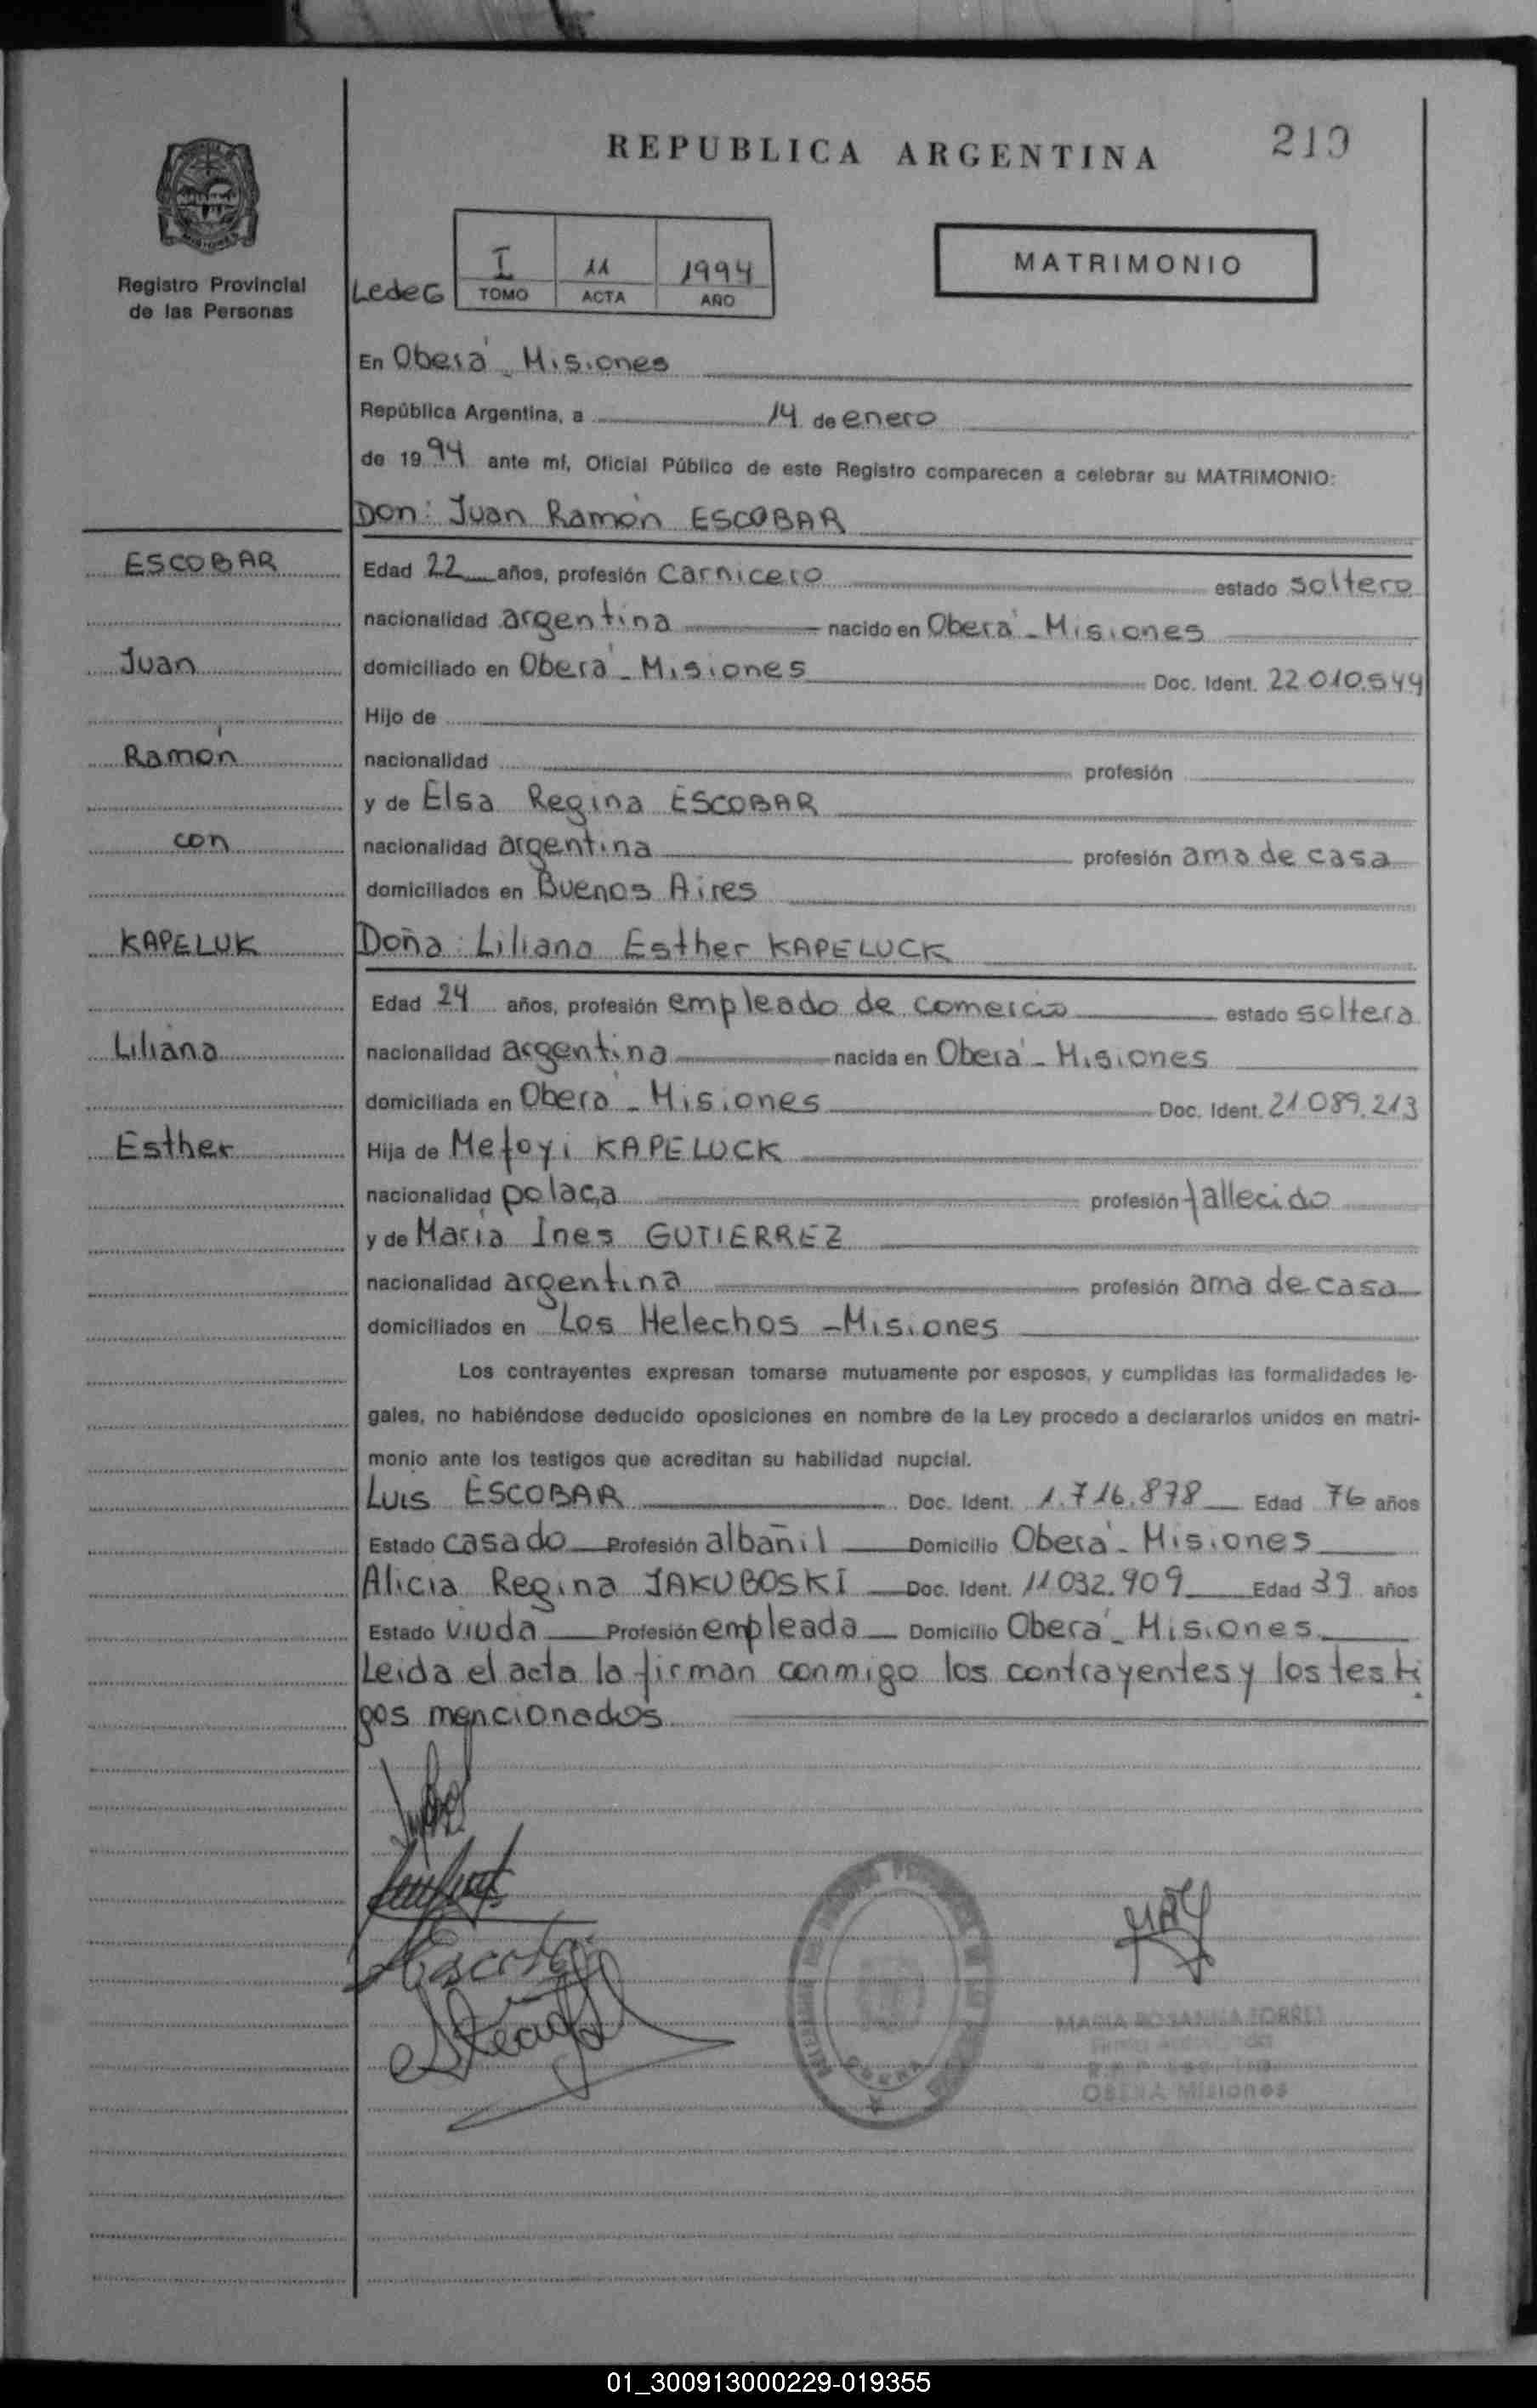 REPUBLICA ARGENTINA
219
Registro Provincial
de las Personas
LedeG
I 11 1994
TOMO ACTA AÑO
MATRIMONIO
En Oberá - Misiones
República Argentina, a 14 de enero
de 1994 ante mí, Oficial Público de este Registro comparecen a celebrar su MATRIMONIO:
Don: Juan Ramón ESCOBAR
ESCOBAR
Edad 22 años, profesión Carnicero estado soltero
nacionalidad argentina nacido en Oberá - Misiones
Juan
domiciliado en Oberá - Misiones Doc. Ident. 22.010.544
Hijo de
Ramón
nacionalidad profesión
y de Elsa Regina ESCOBAR
con
nacionalidad argentina profesión ama de casa
domiciliados en Buenos Aires
KAPELUK
Doña: Liliana Esther KAPELUCK
Edad 24 años, profesión empleado de comercio estado soltera
Liliana
nacionalidad argentina nacida en Oberá - Misiones
domiciliada en Oberá - Misiones Doc. Ident. 21.089.213
Esther
Hija de Mefoyi KAPELUCK
nacionalidad polaca profesión fallecido
y de María Ines GUTIERREZ
nacionalidad argentina profesión ama de casa
domiciliados en Los Helechos - Misiones
Los contrayentes expresan tomarse mutuamente por esposos, y cumplidas las formalidades le-
gales, no habiéndose deducido oposiciones en nombre de la Ley procedo a declararlos unidos en matri-
monio ante los testigos que acreditan su habilidad nupcial.
Luis ESCOBAR Doc. Ident. 1.716.878 Edad 76 años
Estado casado Profesión albañil Domicilio Oberá - Misiones
Alicia Regina JAKUBOSKI Doc. Ident. 11.032.909 Edad 39 años
Estado viuda Profesión empleada Domicilio Oberá - Misiones
Leída el acta la firman conmigo los contrayentes y los testi
gos mencionados
MARIA ROSANNA TORRES
OBERA Misiones
01_300913000229-019355